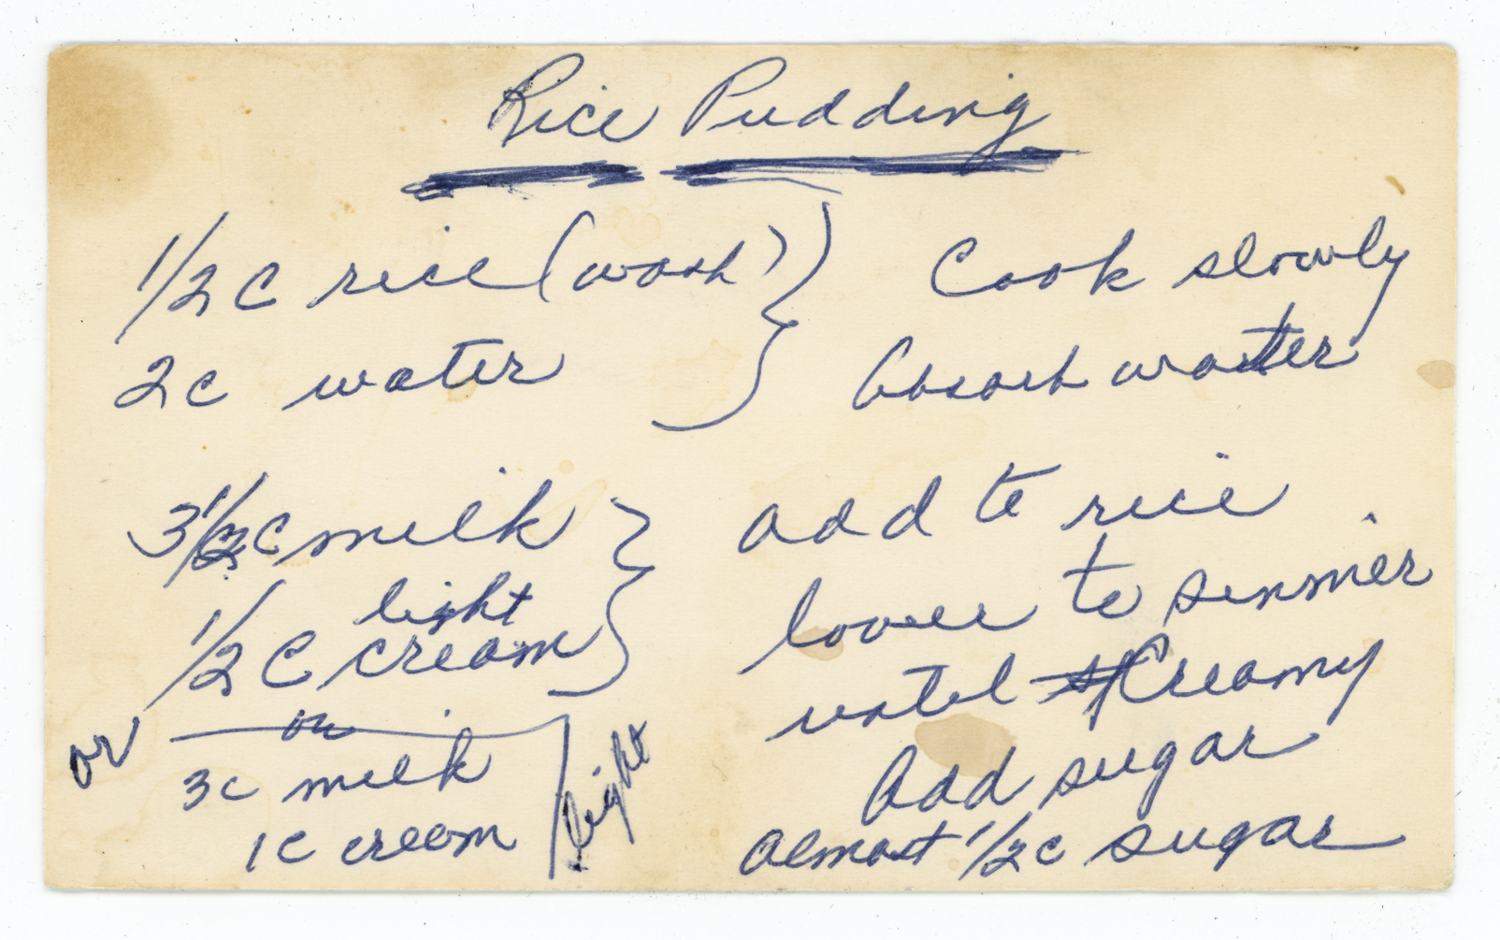 Rice Pudding
1/2 C rice (wash)
2c water
Cook slowly
Absorb water
3 1/2 C milk
light
1/2 C cream
or
or
3c milk
1c cream
light
add to rice
lower to simmer
until Creamy
Add sugar
almost 1/2c sugar